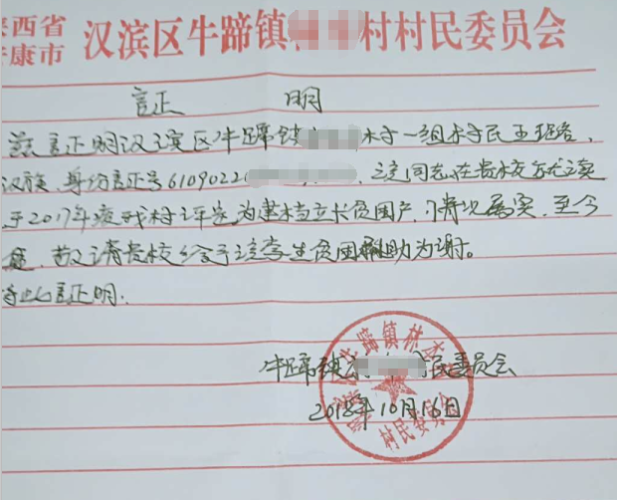 陕西省
安康市
汉滨区牛蹄镇村村民委员会
证 明
兹证明汉滨区牛蹄镇村一组村民王
汉族,身份证号6109022 该同志在贵校就读
于2017年度我村评定为建档立卡贫困户,情况属实,至今
故请贵校给予该学生贫困补助为谢。
特此证明.
牛蹄镇民委员会
2018年10月16日
牛蹄镇林
村民委员会